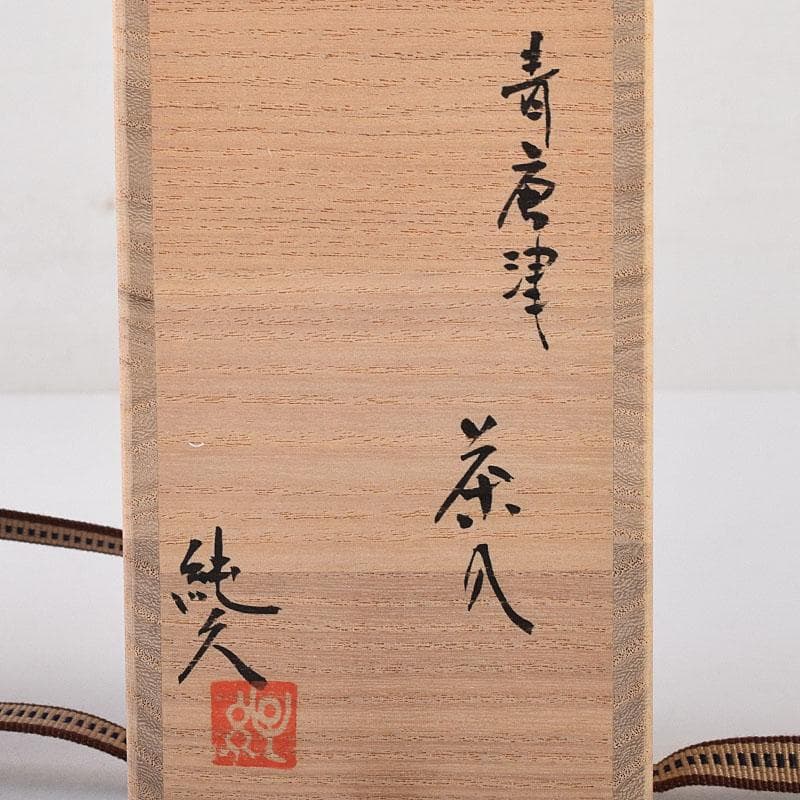 青唐津
茶入
純久